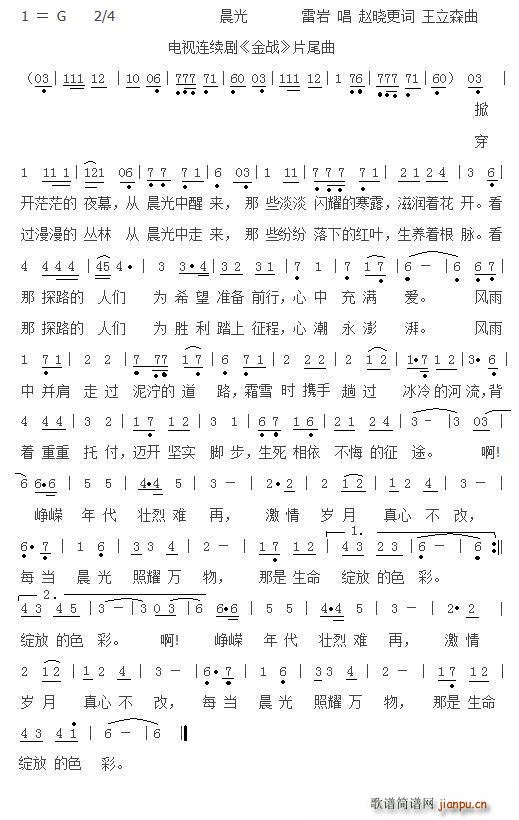 1 = G 2/4 晨光 雷岩 唱 赵晓更词 王立森曲
电视连续剧《金战》片尾曲
(03 | 111 12 | 10 06 | 777 71 | 60 03 | 111 12 | 76 777 71 | 60) 03 |
掀
穿
1 11 1 | 121 06 | 7 7 7 1 | 6 03 | 1 11 | 7 77 76 | 2 2 2 4 | 3 6 |
开茫茫的 夜幕,从 晨光中醒 来,那 些淡淡 闪耀的寒露,滋润着花 开。看
过漫漫的 丛林 从 晨光中走 来,那 些纷纷 落下的红叶,生养着根 脉。看
4 4 4 4 | 45 4· | 3 3·4 | 3 2 3 1 | 7 1 | 7 17 | 6 – | 6 6 7 |
那 探路的 人们 为 希 望 准备 前行,心 中 充 满 爱。 风雨
那 探路的 人们 为 胜 利 踏上 征程,心 潮 永 澎 湃。 风雨
1 7 1 | 2 2 | 7 77 | 17 6 | 1 2 | 2 22 | 2 12 | 1·7 12 | 3· 6 |
中 并肩 走 过 泥泞的 道 路,霜雪 时 携手 趟 过 冰冷 的河 流,背
4 4 4 | 3 2 | 1 7 12 | 3 1 | 67 16 | 21 24 | 3 – | 3 03 |
着 重重 托 付,迈开 坚实 脚 步,生死 相依 不悔 的征 途。 啊!
6 6·6 | 5 5 | 4·4 5 | 3 – | 2·2 | 2 12 | 1 2 4 | 3 – |
峥嵘 年 代 壮烈 难 再, 激 情 岁 月 真心 不 改,
6·7 | 1 6 | 3 3 4 | 2 – | 17 12 | 1. 43 23 | 6 – | 6 :‖
每 当 晨 光 照耀 万 物, 那是 生命 绽放 的色 彩。
2. 43 45 | 3 – | 3 03 | 6 6·6 | 5 5 | 4·4 5 | 3 – | 2·2 |
绽放 的色 彩。 啊! 峥嵘 年 代 壮烈 难 再, 激 情
2 12 | 1 2 4 | 3 – | 6·7 | 1 6 | 3 3 4 | 2 – | 17 12 |
岁 月 真心 不 改, 每 当 晨 光 照耀 万 物, 那是 生命
43 41 | 6 – | 6 ‖
绽放 的色 彩。
歌谱简谱网
jianpu.cn